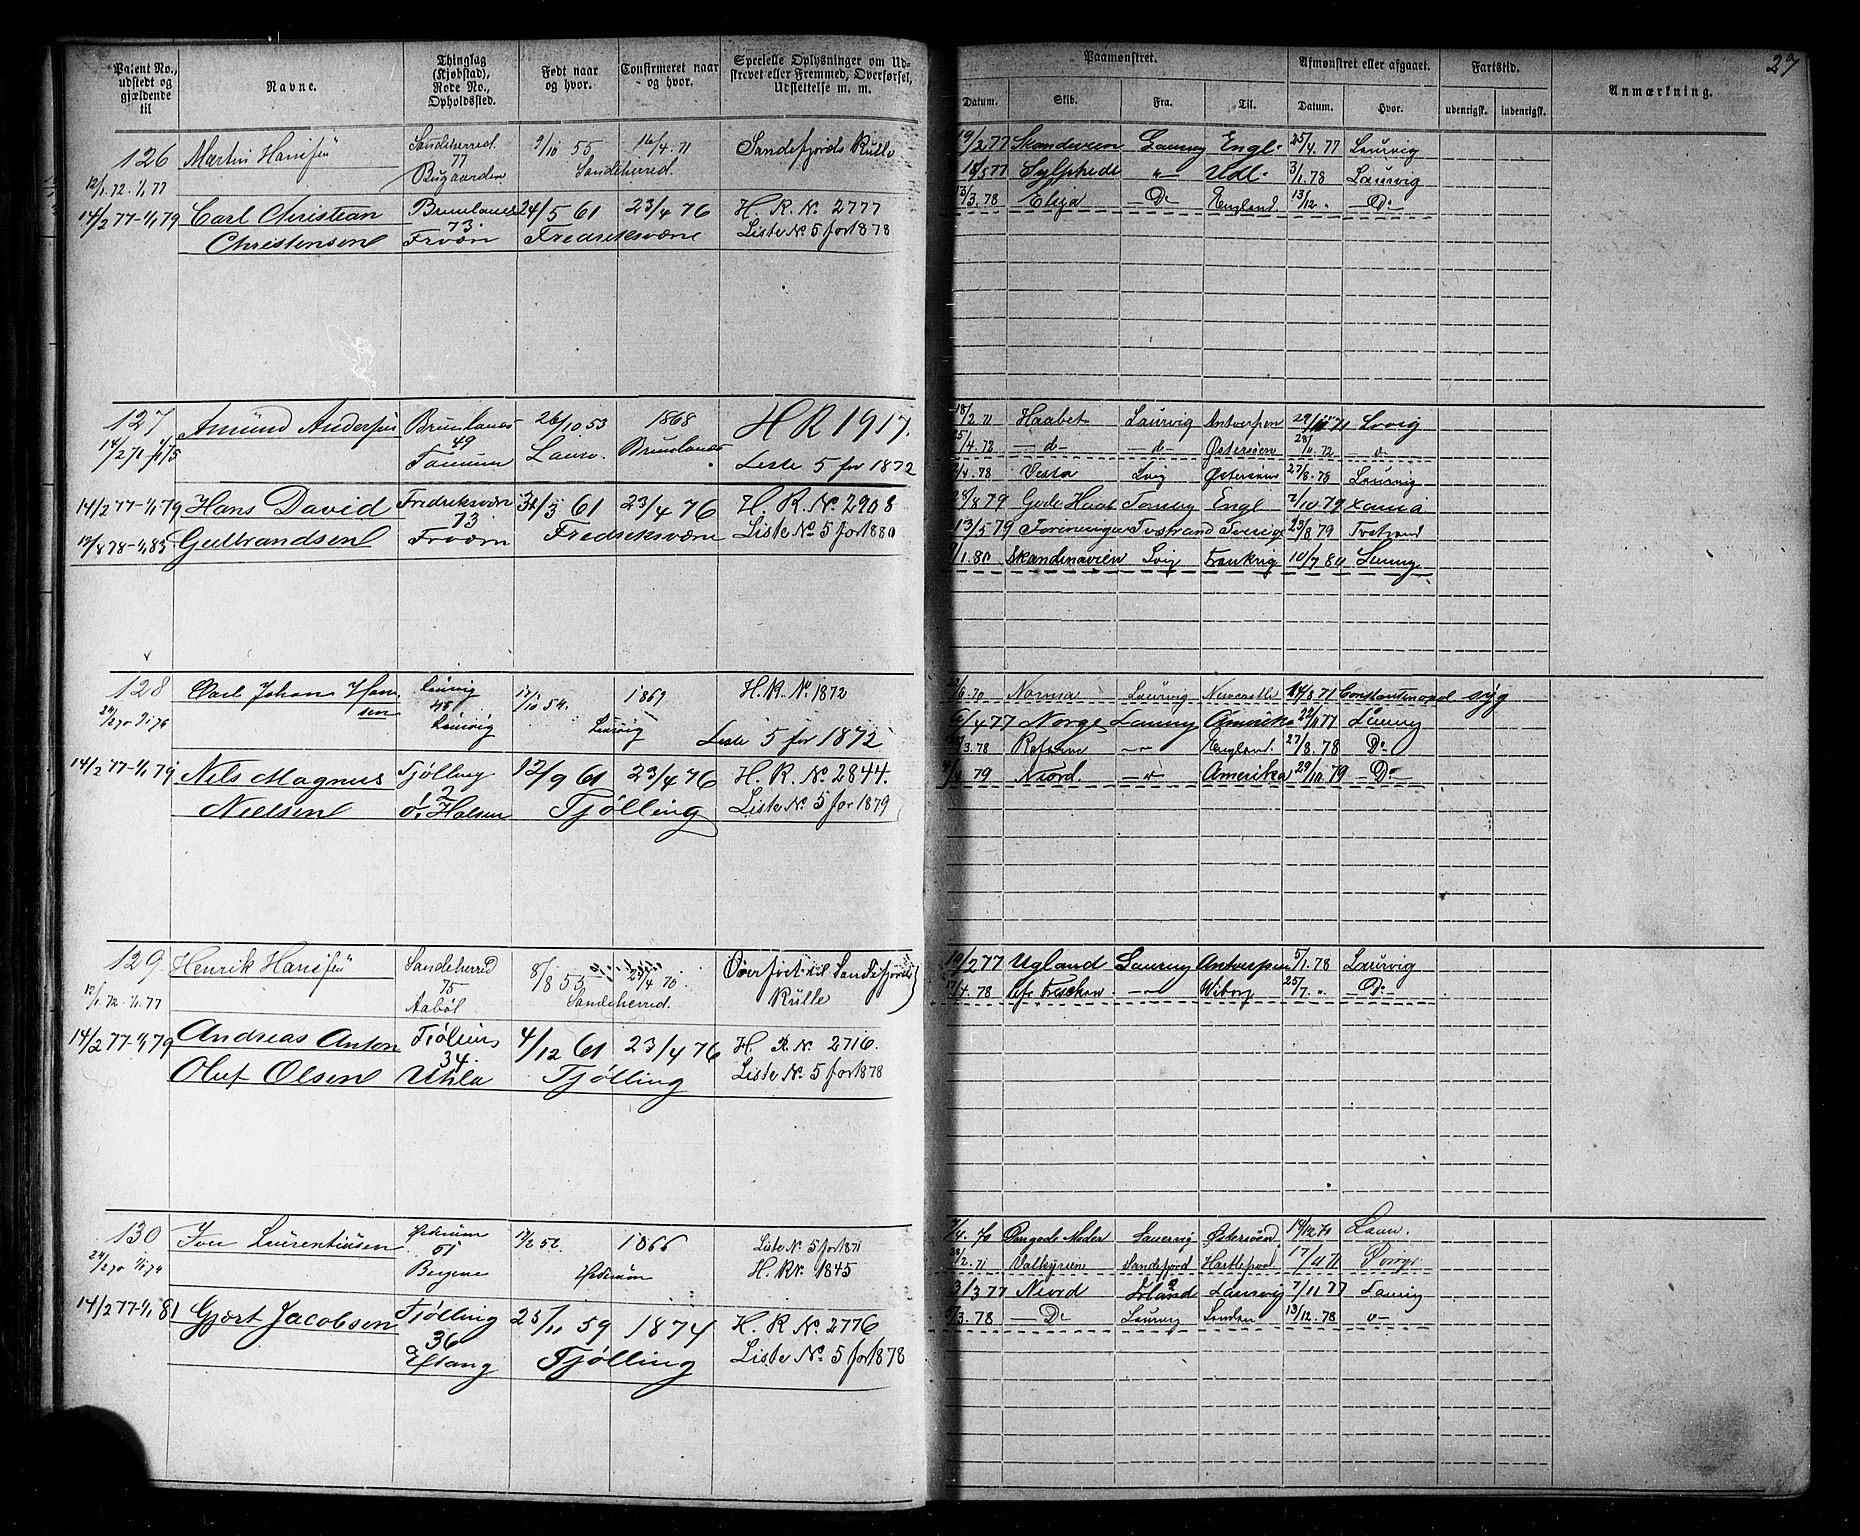 27
Patent No., udstedt og gjældende til
Navne.
Thinglag (Kjøbstad), Rode No., Opholdssted.
Født naar og hvor.
Confirmeret naar og hvor.
Specielle Oplysninger om Udskrevet eller Fremmed, Overførsel, Udslettelse m. m.
Paamønstret.
Afmønstret eller afgaaet.
Fartstid.
Anmærkning.
Datum. Skib. Fra. Til. Datum. Hvor. udenrigsk. indenrigsk.
126 Martin Hansen Sandeherred 9/10 55 16/4 71 Sandefjords Rulle
77
12/1 72 - 1/1 77 Bugaarden Sandeherred.
14/2 77-1/1 79 Carl Christian Brunlanes 24/5 61 23/4 76 H. R. No 2777
73.
Christensen Frværn Fredriksværn Liste No 5 for 1878
19/2 77 Skandinavien Laurvig Engl. 25/4 77 Laurvig
18/5 77 Sylphide " Udl. 3/1 78 Laurvig
13/3 78 Eliza Do England. 13/12 " Do
127 Amund Andersen Brunlanes 26/10 53 1868 H R 1917.
49
14/2 71-1/1 75 Tanum Laurv. Brunlanes Liste 5 for 1872
14/2 77-1/1 79 Hans David Fredriksværn 31/3 61 23/4 76 H. R. No 2908
73
12/8 78-1/1 85 Gulbrandsen Frværn Fredriksværn Liste No 5 for 1880
18/2 71 Haabet Laurvig Antwerpen 29/ 71 Lvvig
25/4 72 d d Østersøen 28/10 72 o
/4 78 Vesta Lvig Østersøen 27/8 78 Laurvig
28/8 79 Gode Haab Tønsbg Engl 7/10 79 Xania
13/5 79 Foreningen Tvestrand Sverige 23/8 79 Tvestrand
/1 80 Skandinavien Lvig Frankrig 10/7 80 Laurvig
128 Carl Johan Hansen Laurvig 17/10 54. 1869 H. R. No 1872
45
24/2 70 - 1/1 76 Laurvig Laurvig Liste 5 for 1872
14/2 77-1/1 79 Nils Magnus Tjølling 12/9 61 23/4 76 H. R. No 2844.
12
Nielsen Ø. Halsen Tjølling Liste No 5 for 1879
/6 70 Norma Laurvig 14/8 71 Constantinopel syg
6/4 77 Norge Laurvig Amerika 22/11 77 Laurvig
/3 78 England. 27/8 78 Do
79 Niord. o Amerika 29/10 79 Do
129 Henrik Hansen Sandeherred 8/8 55 23/4 70 Overført til Sandefjords
75
12/1 72. 1/1 77 Aabøl Sandeherred. Rulle
14/2 77-1/1 79 Andreas Anton Tjølling 4/12 61 23/4 76 H. R. No 2716.
34.
Oluf Olsen Uhla Tjølling Liste No 5 for 1878
19/2 77 Ugland Laurvig Antwerpen 5/1 78 Laurvig
17/4 78 Wiborg 25/7 " Do
130 Iver Laurentiusen Hedrum 17/2 52. 1866 Liste No 5 for 1871
51
24/2 70 1/1 74 Bergene Hedrum H. R No. 1845
14/2 77-1/1 81 Gjert Jacobsen Tjølling 25/11 59 1874 H. R. No 2776
36
Eftang Tjølling Liste No 5 for 1878
9/4 70 Laurvig Østersøen 14/12 70 Laurv.
/2 71 Valkyrien Sandefjord Hartlepool 17/11 71
3/3 77 Niord Laurvig 7/11 77 Laurvig
5/3 78 Do Laurvig London 13/12 78 o